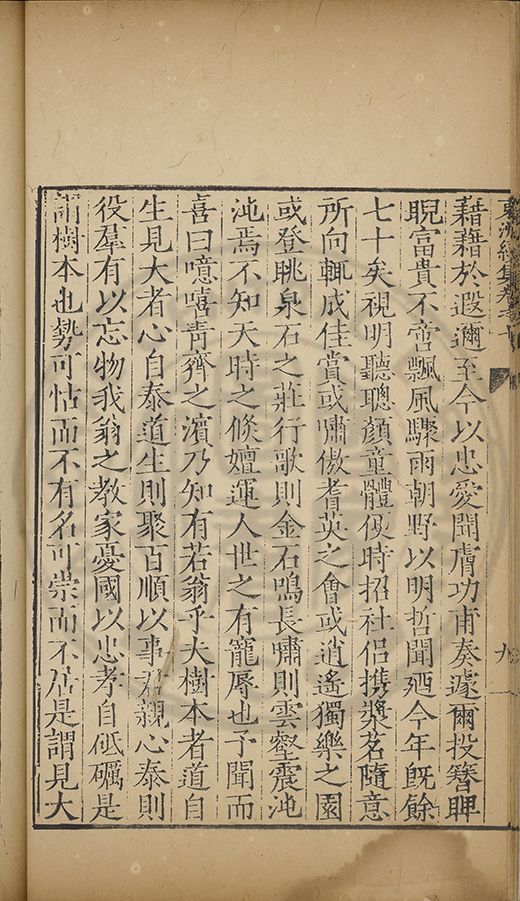 東洲續集卷之十
九
藉藉於遐邇至今以忠愛聞膚功甫奏遽爾投簪睥
睨富貴不啻飄風驟雨朝野以明哲聞廼今年旣餘
七十矣視明聽聰顏童體便時招社侶携漿茗隨意
所向輒成佳賞或嘯傲耆英之會或逍遙獨樂之園
或登眺泉石之莊行歌則金石鳴長嘯則雲壑震沌
沌焉不知天時之倏嬗運人世之有寵辱也予聞而
喜曰噫嘻靑齊之濱乃知有若翁乎夫樹本者道自
生見大者心自泰道生則聚百順以事君親心泰則
役羣有以忘物我翁之教家憂國以忠孝自砥礪是
謂樹本也勢可怙而不有名可崇而不居是謂見大